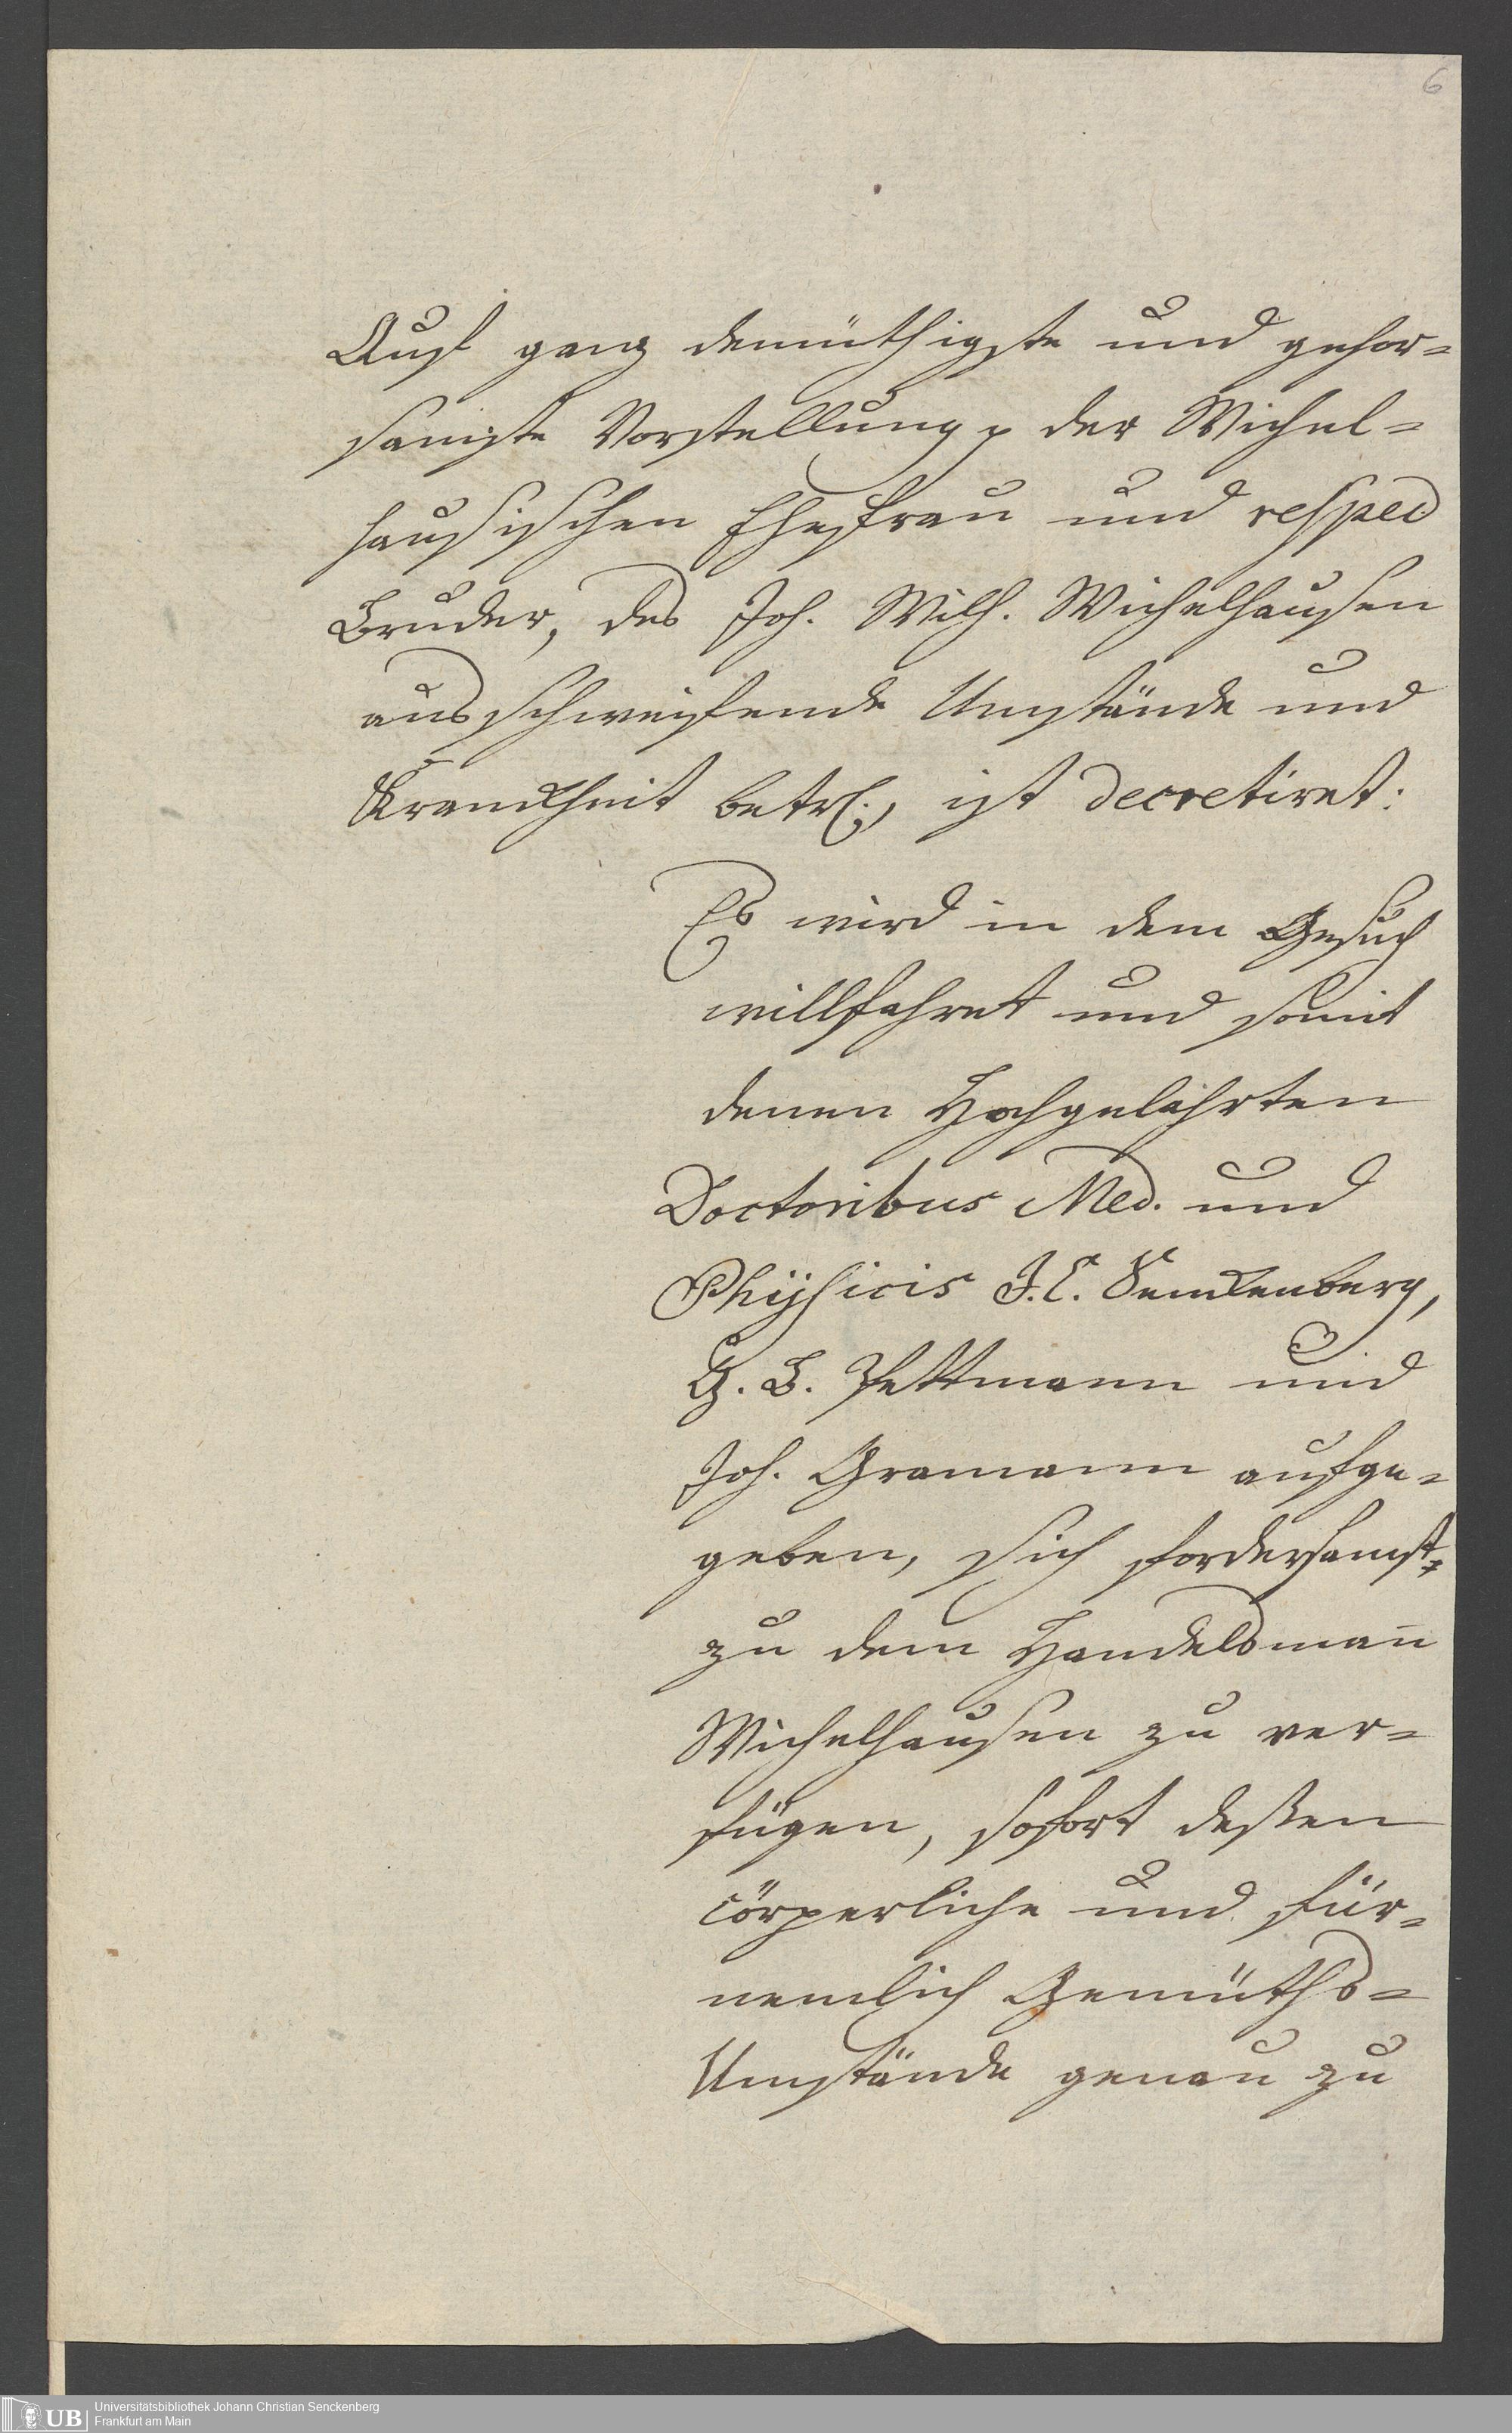 6
Auf ganz demüthigste und gehor=
samste Vorstellung p der Wichel=
hausischen Ehefrau und respec
Bruder, des Joh. Wilh. Wichelhausen
ausschweifende Umstände und
Kranckheit betrf., ist decretiret:
Es wird in dem Gesuch
willfahret und somit
denen Hochgelahrten
Doctoribus Med. und
Physicis J. C. Senckenberg,
G. B. Pettmann und
Joh. Gramann aufge=
geben, sich fordersamst
zu dem Handelsmañ
Wichelhausen zu ver=
fügen, sofort deßen
cörperliche und für=
nemlich Gemüths=
Umstände genau zu
UB
Universitätsbibliothek Johann Christian Senckenberg
Frankfurt am Main